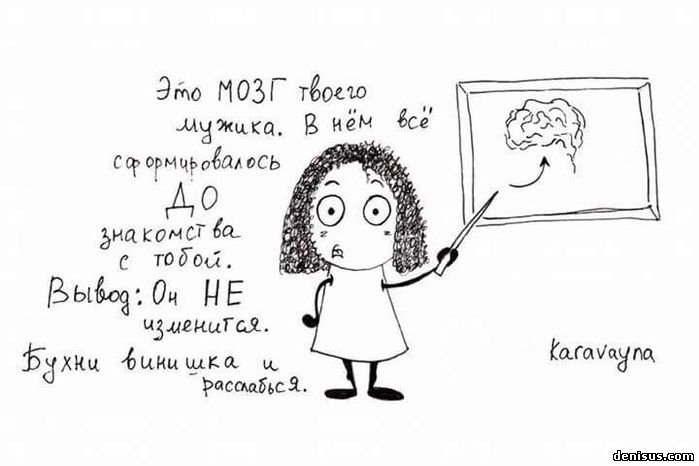 Это МОЗГ твоего
мужика. В нём всё
сформировалось
ДО
знакомства
с тобой.
Вывод: Он НЕ
изменится.
Бухни винишка и
расслабься.
Karavayna
denisus.com